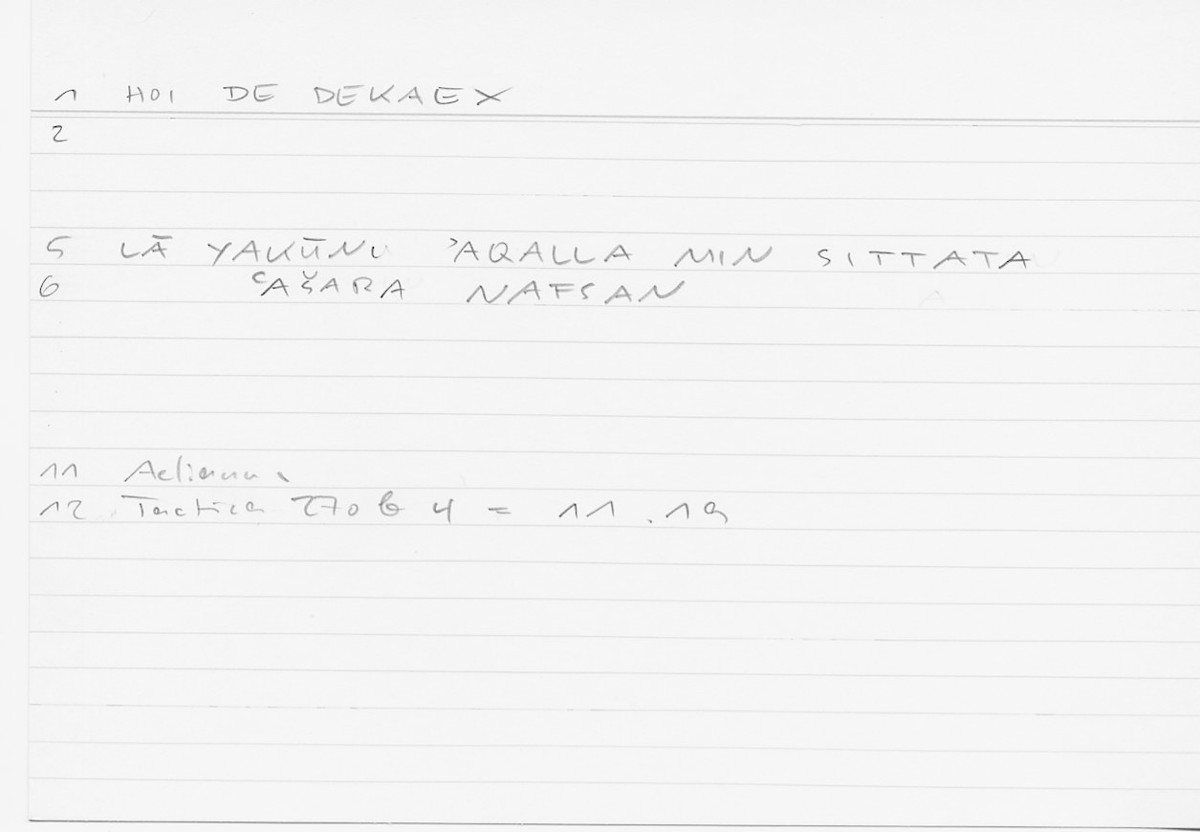 1 HOI DE DEKAEX
2
5 LĀ YAKŪNU ʾAQALLA MIN SITTATA
6 ʿAŠARA NAFSAN
11 Aelianus
12 Tactica 270 b 4 = 11.19